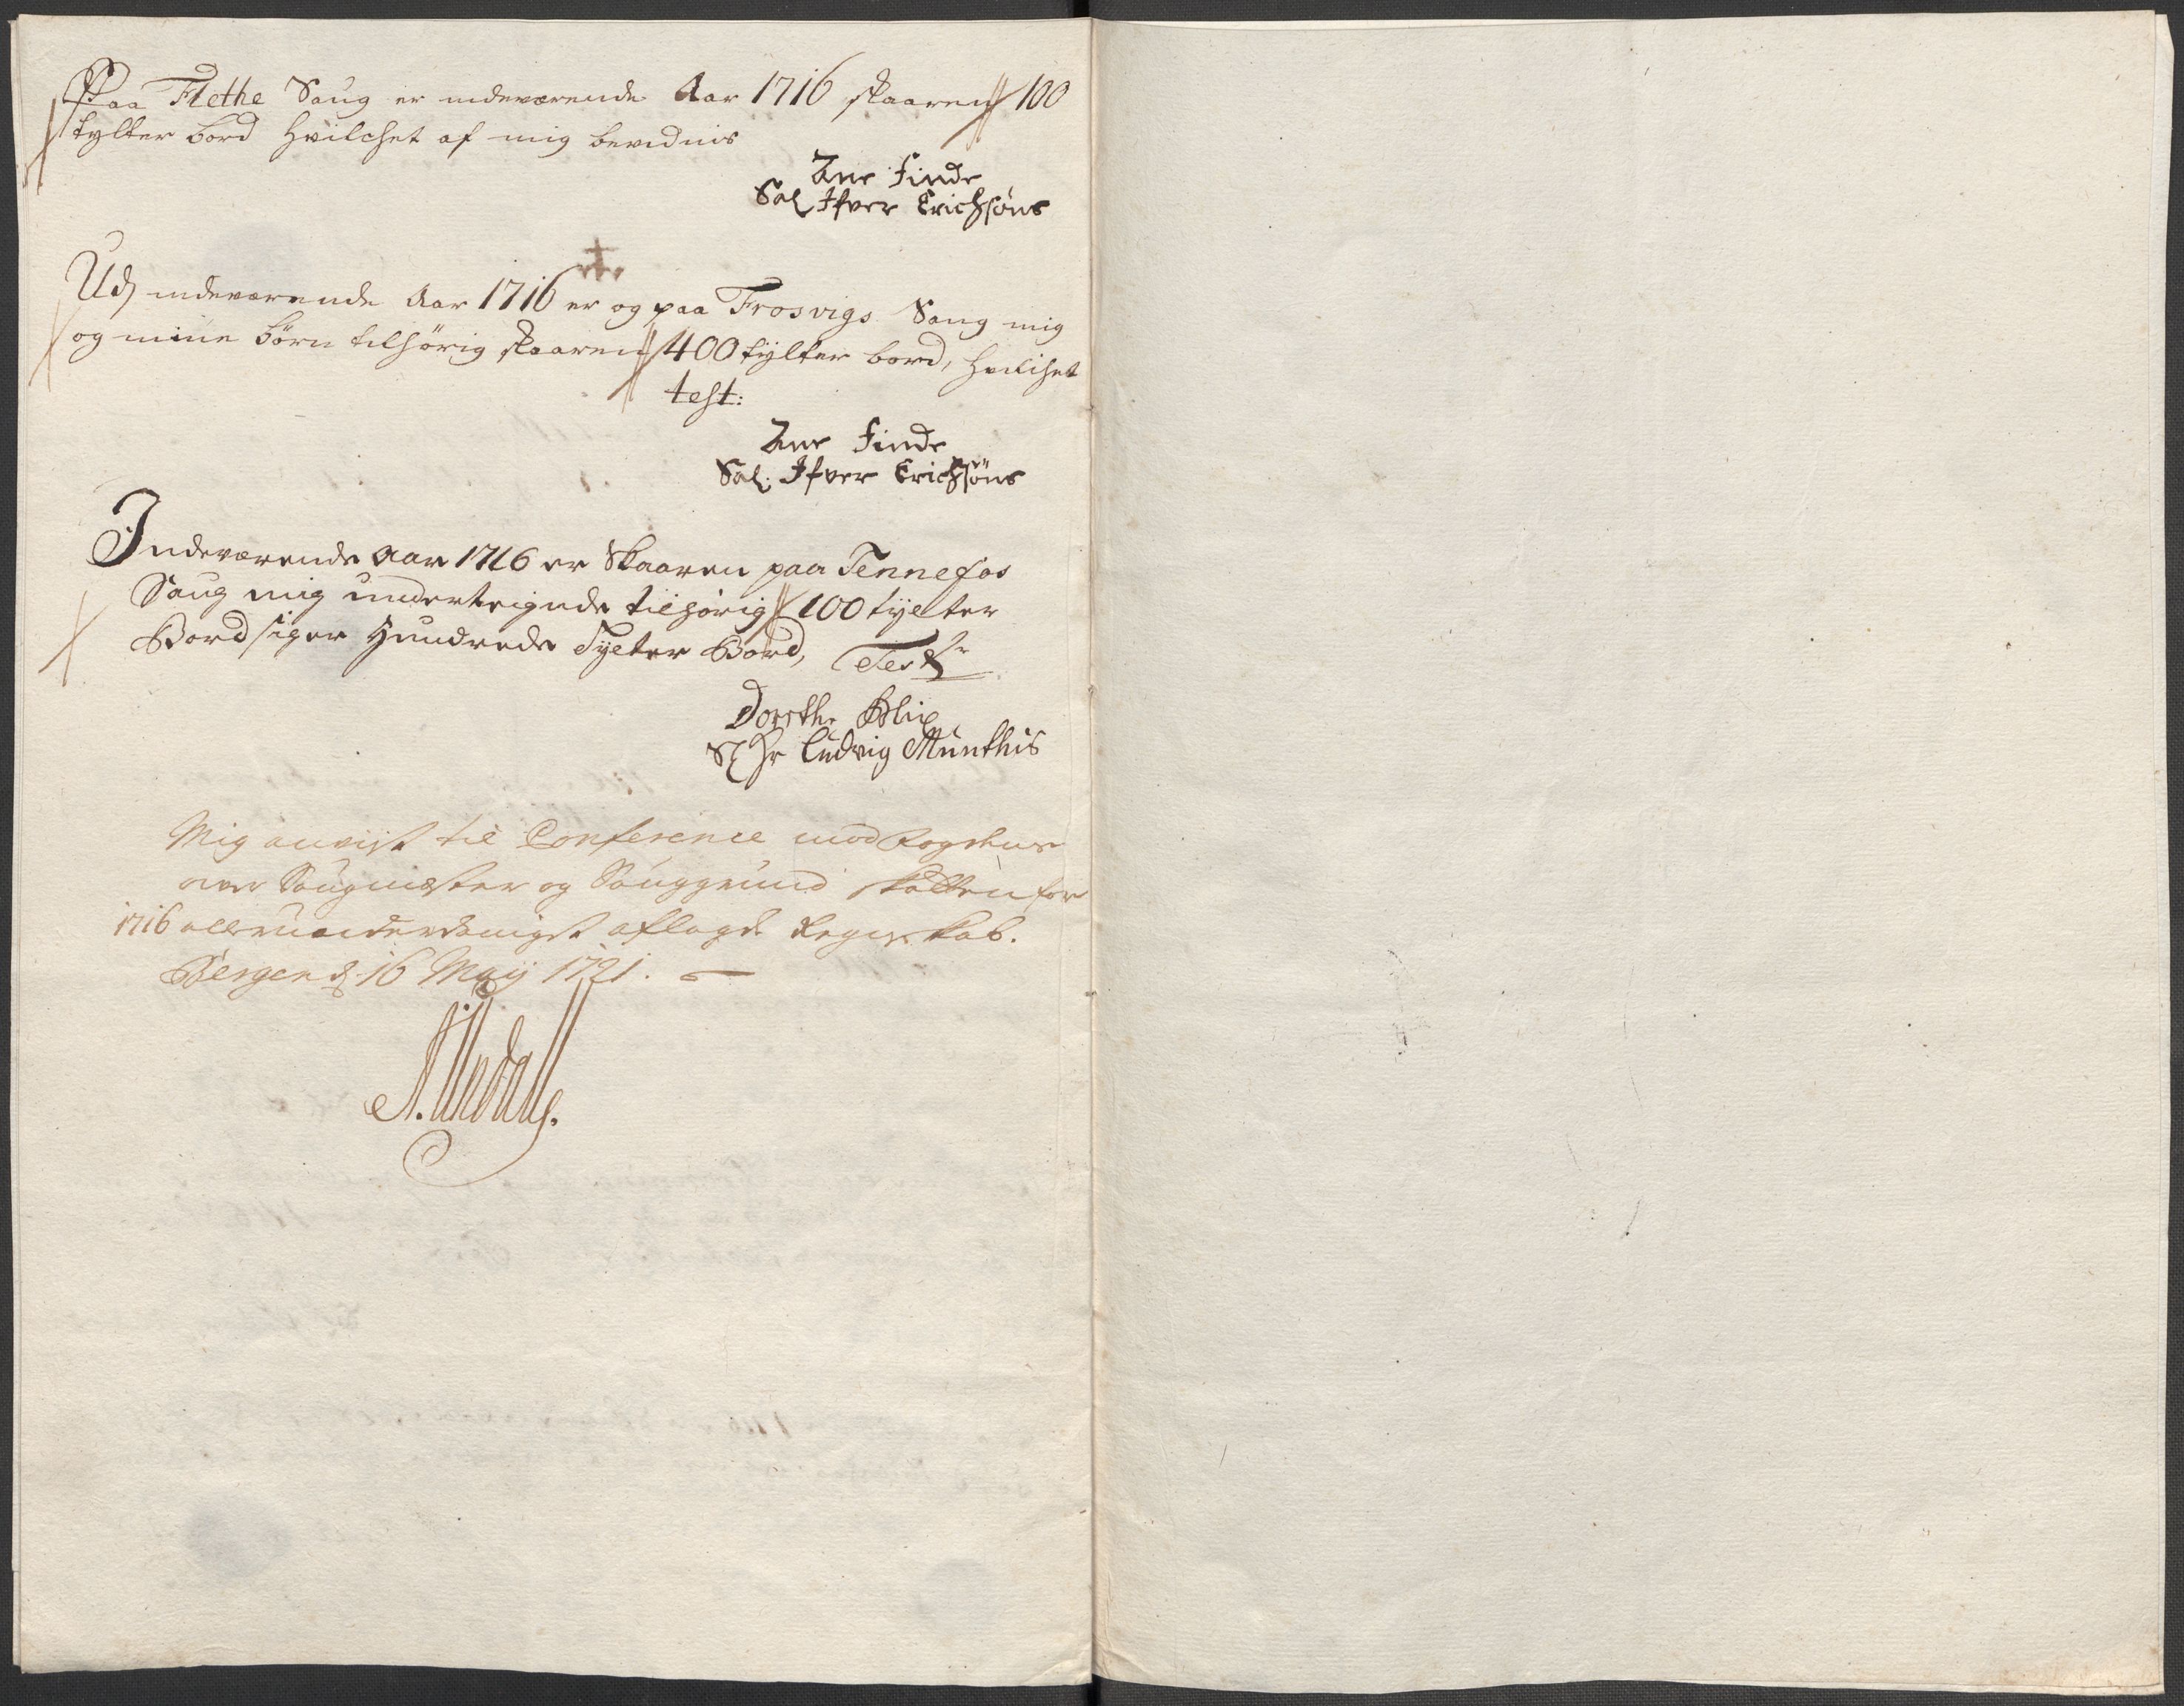 Paa Flethe Saug er indeværende Aar 1716 skaaren 100
tylter bord hvilchet af mig bevidnis
Ane Finde
Sal Ifver Erichsøns
Udj indeværende Aar 1716 er og paa Frosvigs Saug mig
og mine børn tilhørig skaaren 400 tylter bord, hvilchet
test:
Ane Finde
Sal. Ifver Erichsøns
Indeværende Aar 1716 er Skaaren paa Tennefos
Saug mig underteignede tilhørig 100 tylter
Bord siger Hundrede Tylter Bord,
Dorethe Blix
Sl Hr Ludvig Munthis
Mig anvist til Conference mod Fogdens
over Saugmester og Sauggrund skatten for
1716 allerunderdanigst aflagde Regenskab.
Bergen d 16 Maij 1721.